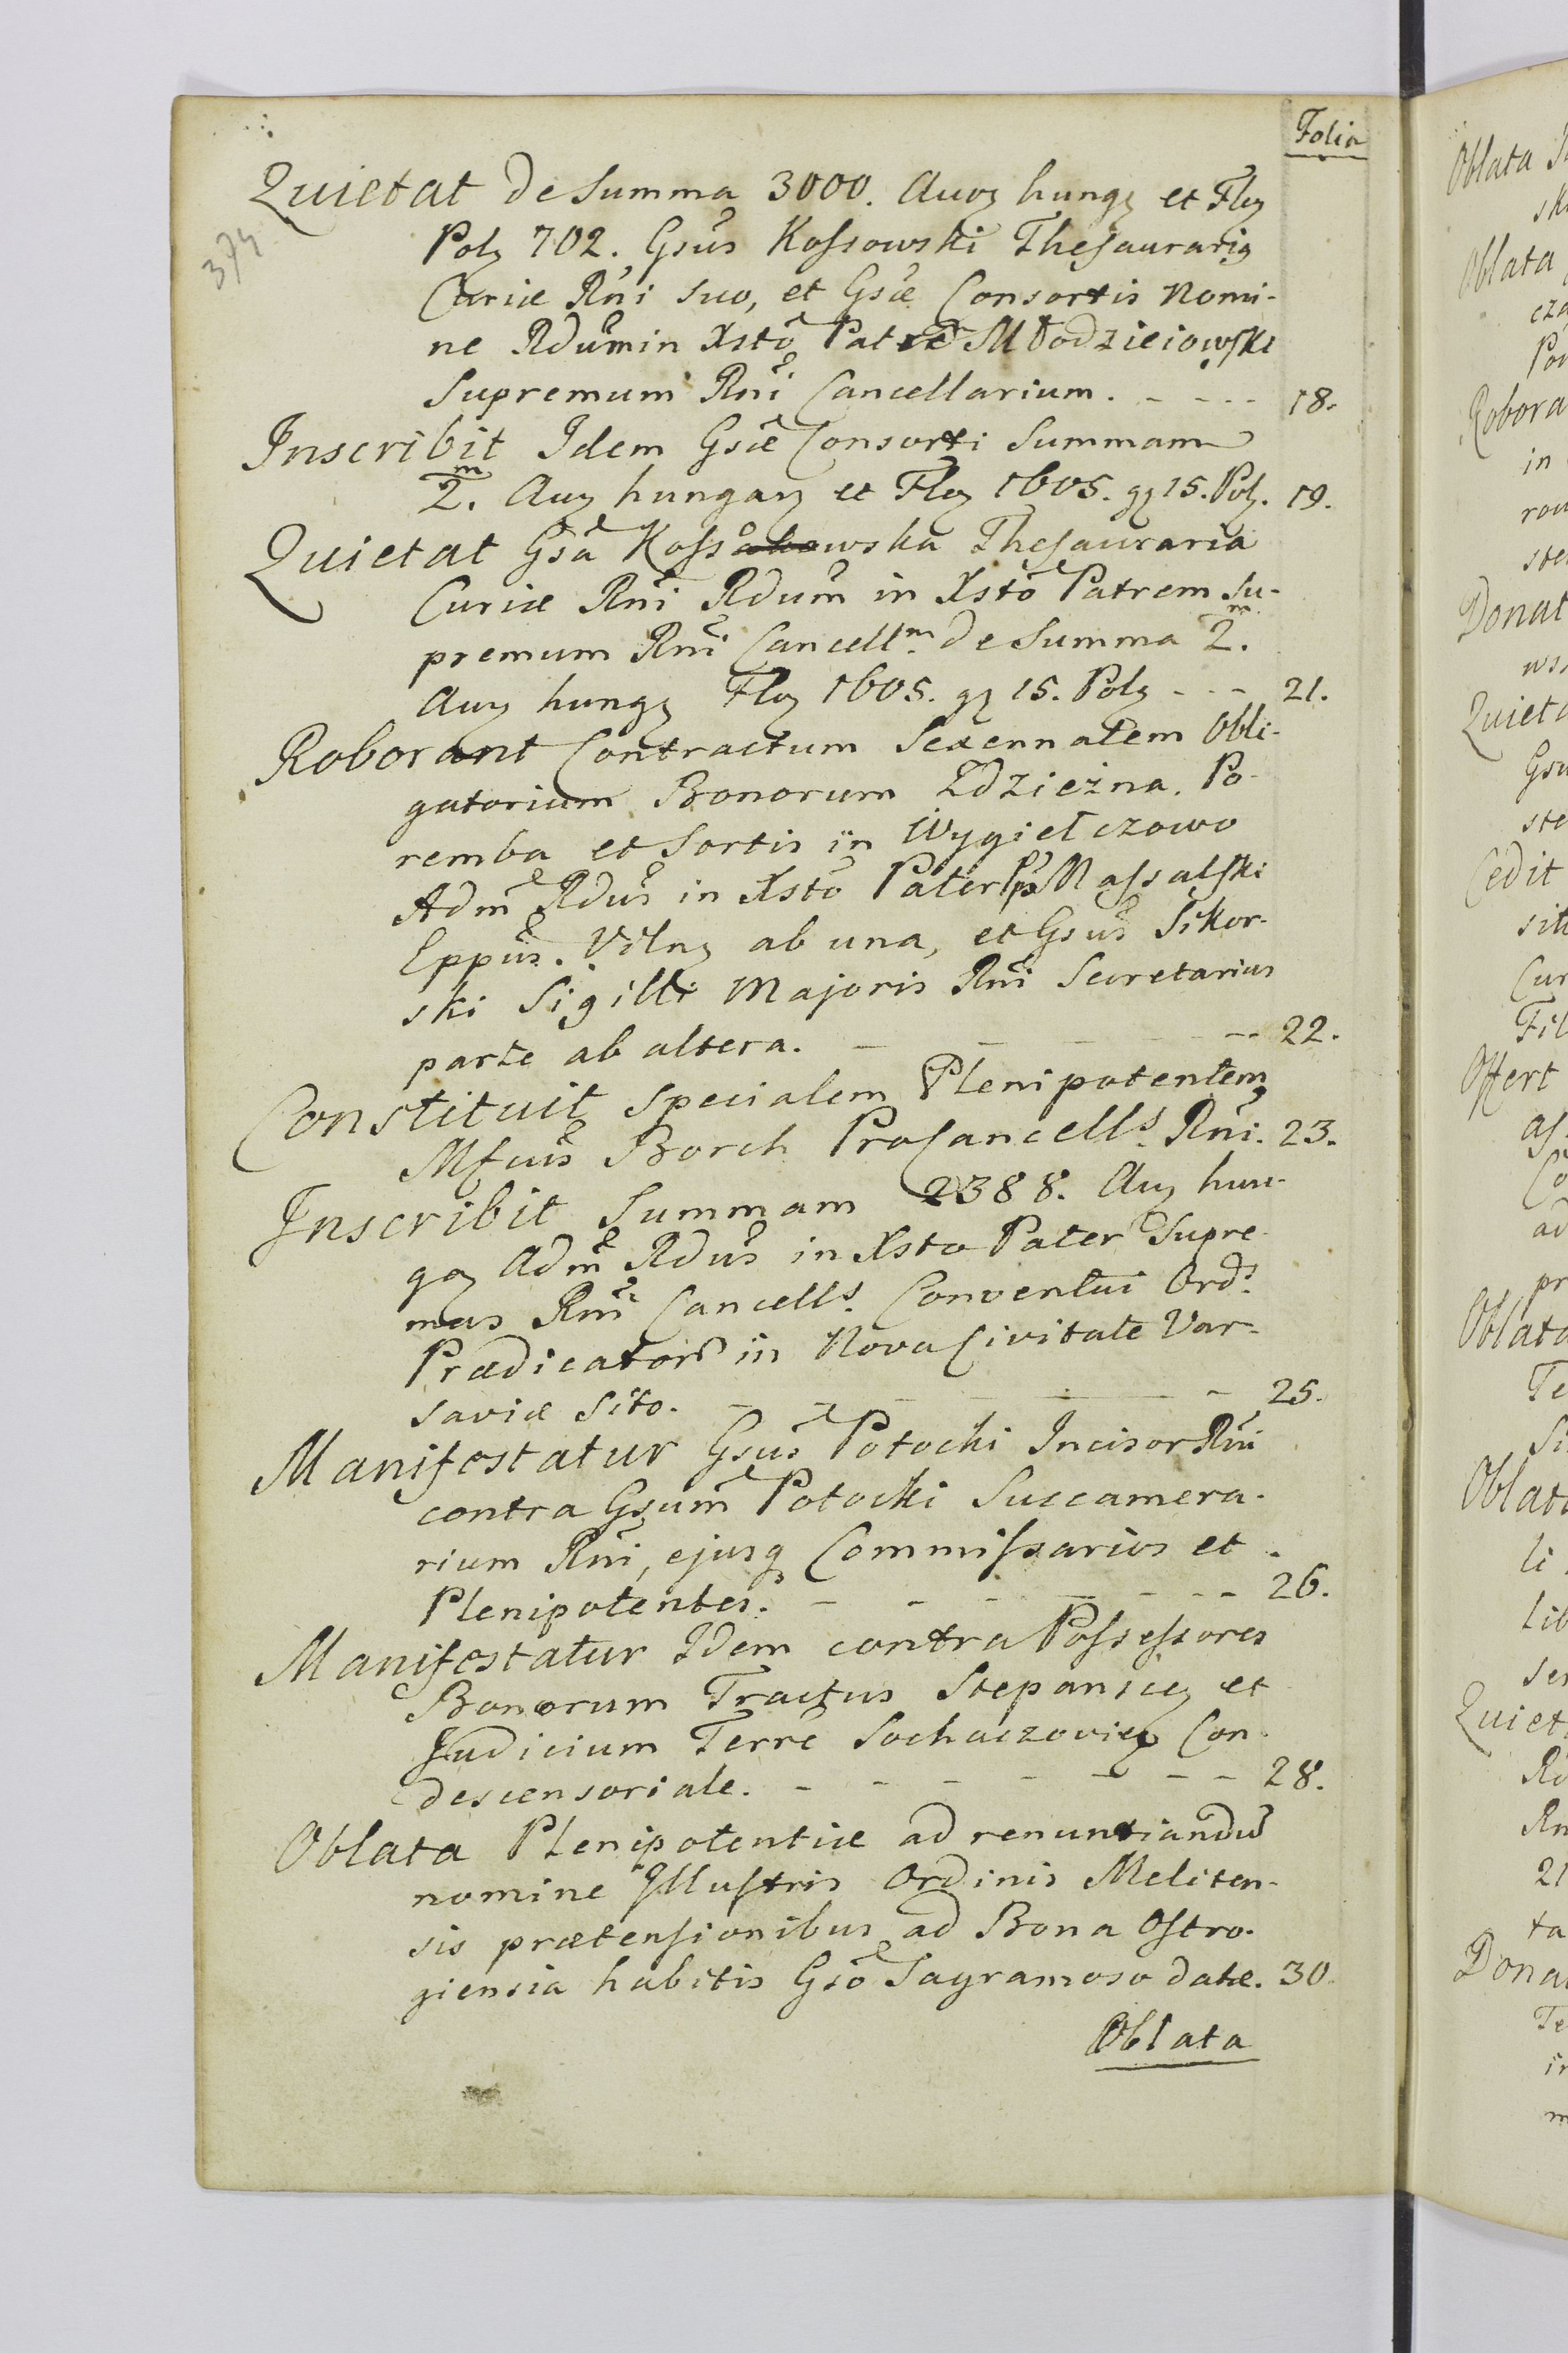 Folia
Quietat de Summa 3000. Auꝝ hungꝫ et Flꝝ
374
Polꝫ 702. Gsus Kossowski Thesaurariꝫ
Curiæ Rni suo, et Gsæ Consortis Nomi-
ne Rdum in Xsto Patre Młodzieiowski
Supremum Rni Cancellarium. - - - - 18.
Inscribit Idem Gsæ Consorti Summam
2.m Auꝝ hungaꝝ et Flꝝ 1605. gꝝ 15. Polꝫ. 19.
Quietat Gsa Kossowska Thesauraria
Curiæ Rni Rdum in Xsto Patrem Su-
premum Rni Cancellm. de Summa 2.m
Auꝝ hungꝫ Flꝝ 1605. gꝝ 15. Polꝫ - - - 21.
Roborant Contractum Sexennalem Obli-
gatorium Bonorum Zdzieżna. Po-
remba et Sortis in Wygiełczowo
Adm Rdus in Xsto Pater Massalski
Eppus. Vilnꝫ ab una, et Gsus Sikor-
ski Sigilli Majoris Rni Secretarius
parte ab altera. - - - - - 22.
Constituit specialem Plenipotentem
Mfcus Borch ProCancells. Rni. 23.
Inscribit Summam 2388. Auꝝ hun-
gaꝝ Adm Rdus in Xsto Pater Supre-
mus Rni Cancells. Conventui Ords.
Prædicator in Nova Civitate Var-
saviæ Sito. - - - - - 25.
Manifestatur Gsus Potocki Incisor Rni
contra Gsum Potocki Succamera-
rium Rni, ejusq Commissarios et
Plenipotentes. - - - - - - - 26.
Manifestatur Idem contra Possessores
Bonorum Tractus Stepansieꝫ et
Judicium Terre Sochaczovieꝫ Con-
descensoriale. - - - - - - - 28.
Oblata Plenipotentiæ ad renuntiandu
nomine Illustris Ordinis Meliten-
sis prætensionibus ad Bona Ostro-
giensia habitis Gso Sagramoso datæ. 30.
Oblata